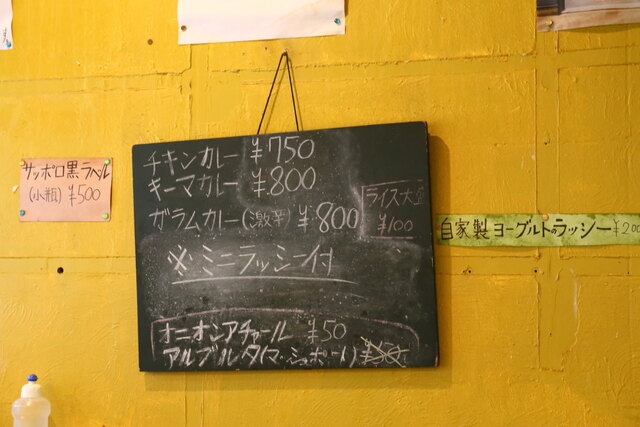 サッポロ黒ラベル
(小瓶) ¥500
チキンカレー ¥750
キーマカレー ¥800
ガラムカレー(激辛) ¥800
ライス大盛
¥100
※ミニラッシー付
オニオンアチャール ¥50
アルブルタ(マッシュポテト) ¥50
自家製ヨーグルトのラッシー ¥200